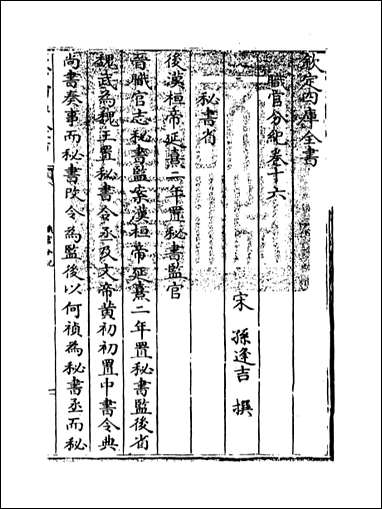 欽定四庫全書
職官分紀卷十六
宋 孫逢吉 撰
秘書省
後漢桓帝延熹二年置秘書監官
晉職官志秘書監案漢桓帝延熹二年置秘書監後省
魏武為魏王置秘書令丞及文帝黄初初置中書令典
尚書奏事而秘書改令為監後以何禎為秘書丞而秘